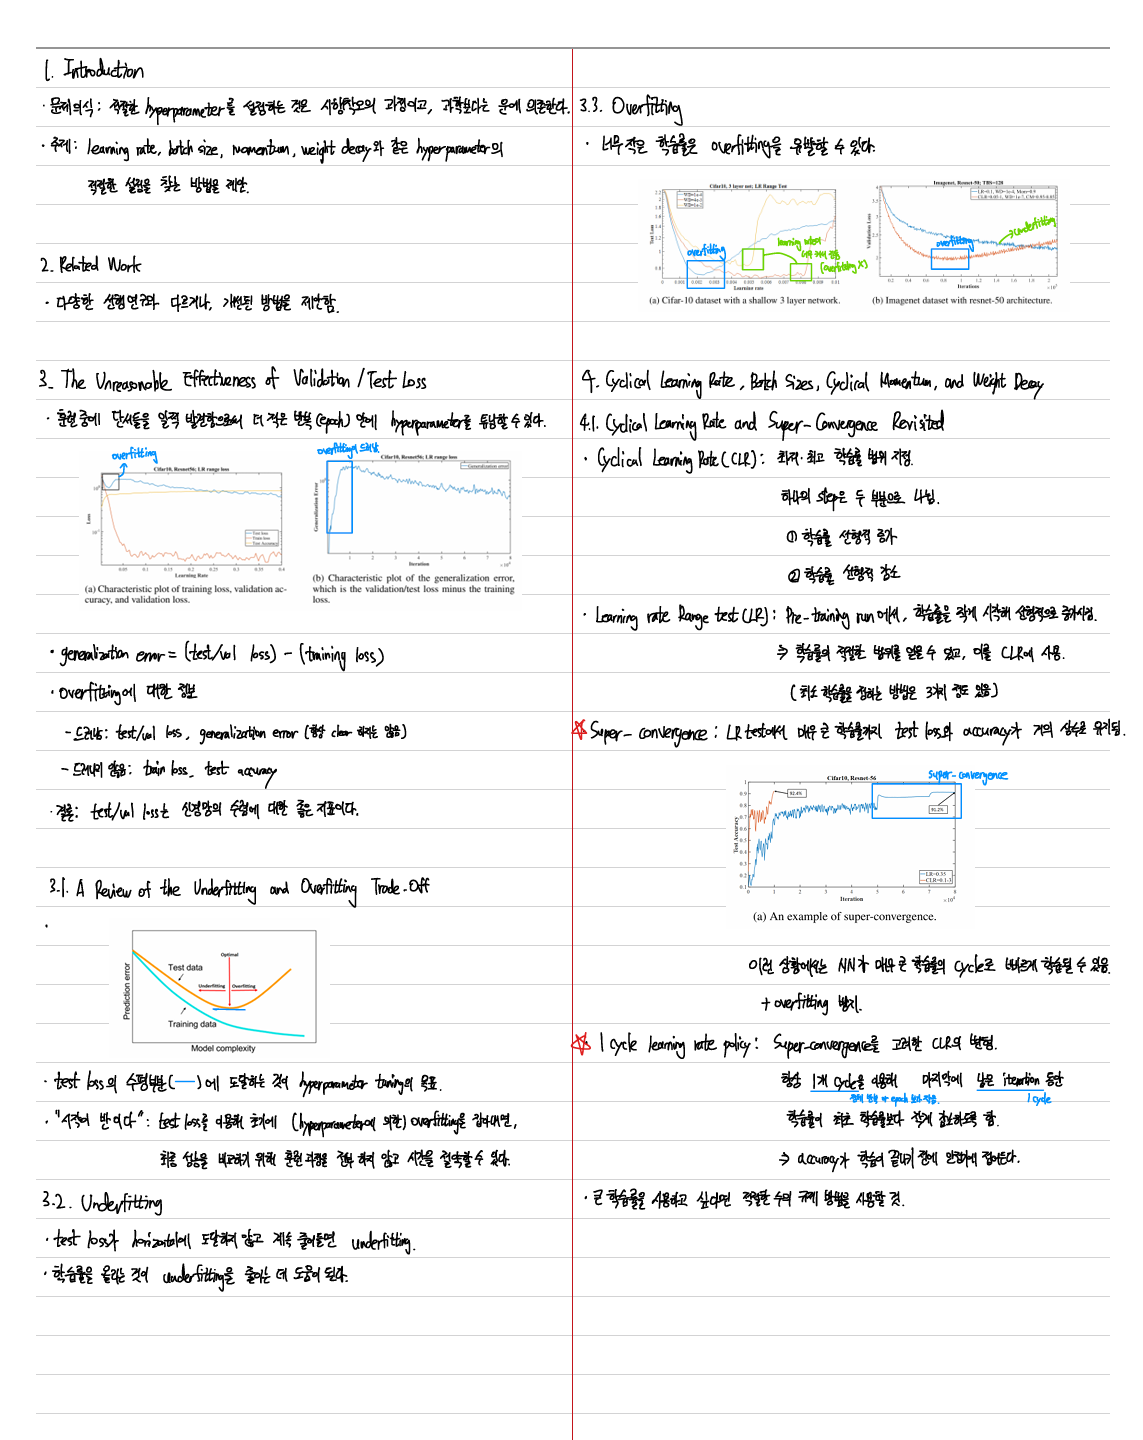 1. Introduction
· 문제의식 : 적절한 hyperparameter를 설정하는 것은 시행착오의 과정이고, 과학보다는 운에 의존한다.
· 주제 : learning rate, batch size, momentum, weight decay와 같은 hyperparameter의
적절한 설정을 찾는 방법을 제안.
2. Related Work
· 다양한 선행연구와 다르거나, 개선된 방법을 제안함.
3. The Unreasonable Effectiveness of Validation / Test Loss
· 훈련 중에 단서들을 일찍 발견함으로써 더 적은 반복(epoch) 안에 hyperparameter를 튜닝할 수 있다.
overfitting
Cifar10, Resnet56; LR range loss
Loss
Test loss
Train loss
Test Accuracy
0.05 0.1 0.15 0.2 0.25 0.3 0.35 0.4
Learning Rate
(a) Characteristic plot of training loss, validation ac-
curacy, and validation loss.
overfitting이 드러남.
Cifar10, Resnet56; LR range loss
Generalization error
Generalization Error
Iteration
(b) Characteristic plot of the generalization error,
which is the validation/test loss minus the training
loss.
· generalization error = (test/val loss) - (training loss)
· overfitting에 대한 정보
- 드러남 : test/val loss, generalization error (항상 clear 하지는 않음)
- 드러나지 않음 : train loss, test accuracy
· 결론 : test/val loss는 신경망의 수렴에 대한 좋은 지표이다.
3.1. A Review of the Underfitting and Overfitting Trade-Off
·
Prediction error
Optimal
Test data
Underfitting Overfitting
Training data
Model complexity
· test loss의 수평부분(—)에 도달하는 것이 hyperparameter tuning의 목표.
· "시작이 반이다" : test loss를 이용해 초기에 (hyperparameter에 의한) overfitting을 잡아내면,
최종 성능을 비교하기 위해 훈련 과정을 전부 하지 않고 시간을 절약할 수 있다.
3.2. Underfitting
· test loss가 horizontal에 도달하지 않고 계속 줄어들면 underfitting.
· 학습률을 올리는 것이 underfitting을 줄이는 데 도움이 된다.
3.3. Overfitting
· 너무 작은 학습률은 overfitting을 유발할 수 있다.
Cifar10, 3 layer net; LR Range Test
Test Loss
WD=1e-4
overfitting
learning rate가
너무 커서 발산
(overfitting X)
0 0.001 0.002 0.003 0.004 0.005 0.006 0.007 0.008 0.009 0.01
Learning rate
(a) Cifar-10 dataset with a shallow 3 layer network.
Imagenet, Resnet-50; TBS=128
Validation Loss
LR=0.1, WD=1e-4, Mom=0.9
→ underfitting
overfitting
Iterations
(b) Imagenet dataset with resnet-50 architecture.
4. Cyclical Learning Rate, Batch Sizes, Cyclical Momentum, and Weight Decay
4.1. Cyclical Learning Rate and Super-Convergence Revisited
· Cyclical Learning Rate (CLR) : 최저·최고 학습률 범위 지정.
하나의 step은 두 부분으로 나뉨.
① 학습률 선형적 증가
② 학습률 선형적 감소
· Learning rate Range test (LR) : Pre-training run에서, 학습률은 작게 시작해 선형적으로 증가시킴.
⇒ 학습률의 적절한 범위를 얻을 수 있고, 이를 CLR에 사용.
(최소 학습률을 정하는 방법은 3가지 정도 있음)
☆ Super-convergence : LR test에서 매우 큰 학습률까지 test loss와 accuracy가 거의 상수로 유지됨.
super-convergence
Cifar10, Resnet-56
Test Accuracy
92.4%
91.2%
LR=0.35
CLR=0.1-3
Iteration
(a) An example of super-convergence.
이런 상황에서는 NN가 매우 큰 학습률의 cycle로 빠르게 학습될 수 있음.
+ overfitting 방지.
☆ 1 cycle learning rate policy : Super-convergence를 고려한 CLR의 변형.
항상 1개 cycle을 이용해 마지막에 남은 iteration 동안
전체 반복 or epoch 보다 작음. 1 cycle
학습률이 최소 학습률보다 작게 감소하도록 함.
⇒ accuracy가 학습이 끝나기 전에 안정기에 접어든다.
· 큰 학습률을 사용하고 싶다면 적절한 수의 규제 방법을 사용할 것.